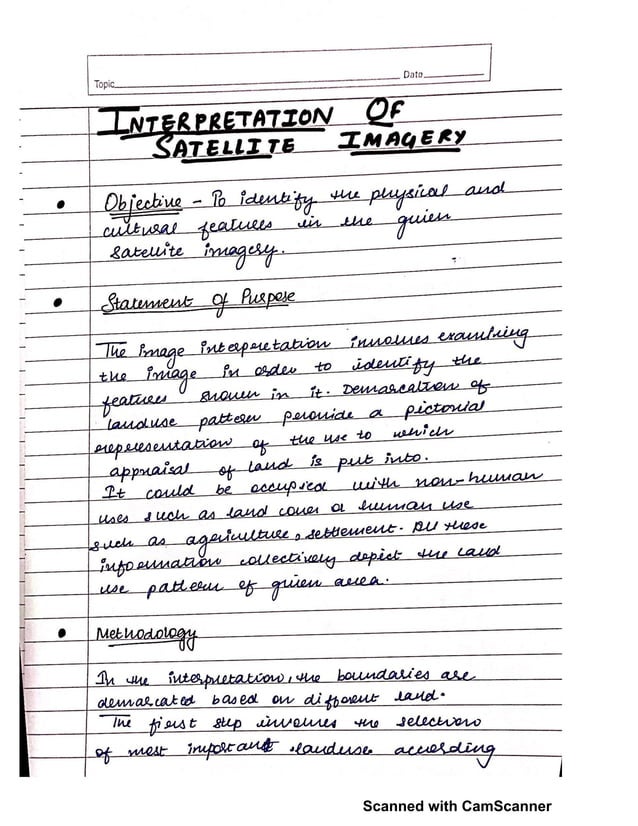 Topic
Date
INTERPRETATION OF
SATELLITE IMAGERY
Objective - To identify the physical and
cultural features in the given
Satellite imagery.
Statement of Purpose
The Image Interpretation involves examining
the image in order to identify the
features shown in it. Demarcation of
landuse pattern provide a pictorial
representation of the use to which
appraisal of land is put into.
It could be occupied with non-human
uses such as land cover or human use
such as agriculture, settlement. All these
information collectively depict the land
use pattern of given area.
Methodology
In the interpretation, the boundaries are
demarcated based on different land.
The first step involves the selection
of most important landuse according
Scanned with CamScanner